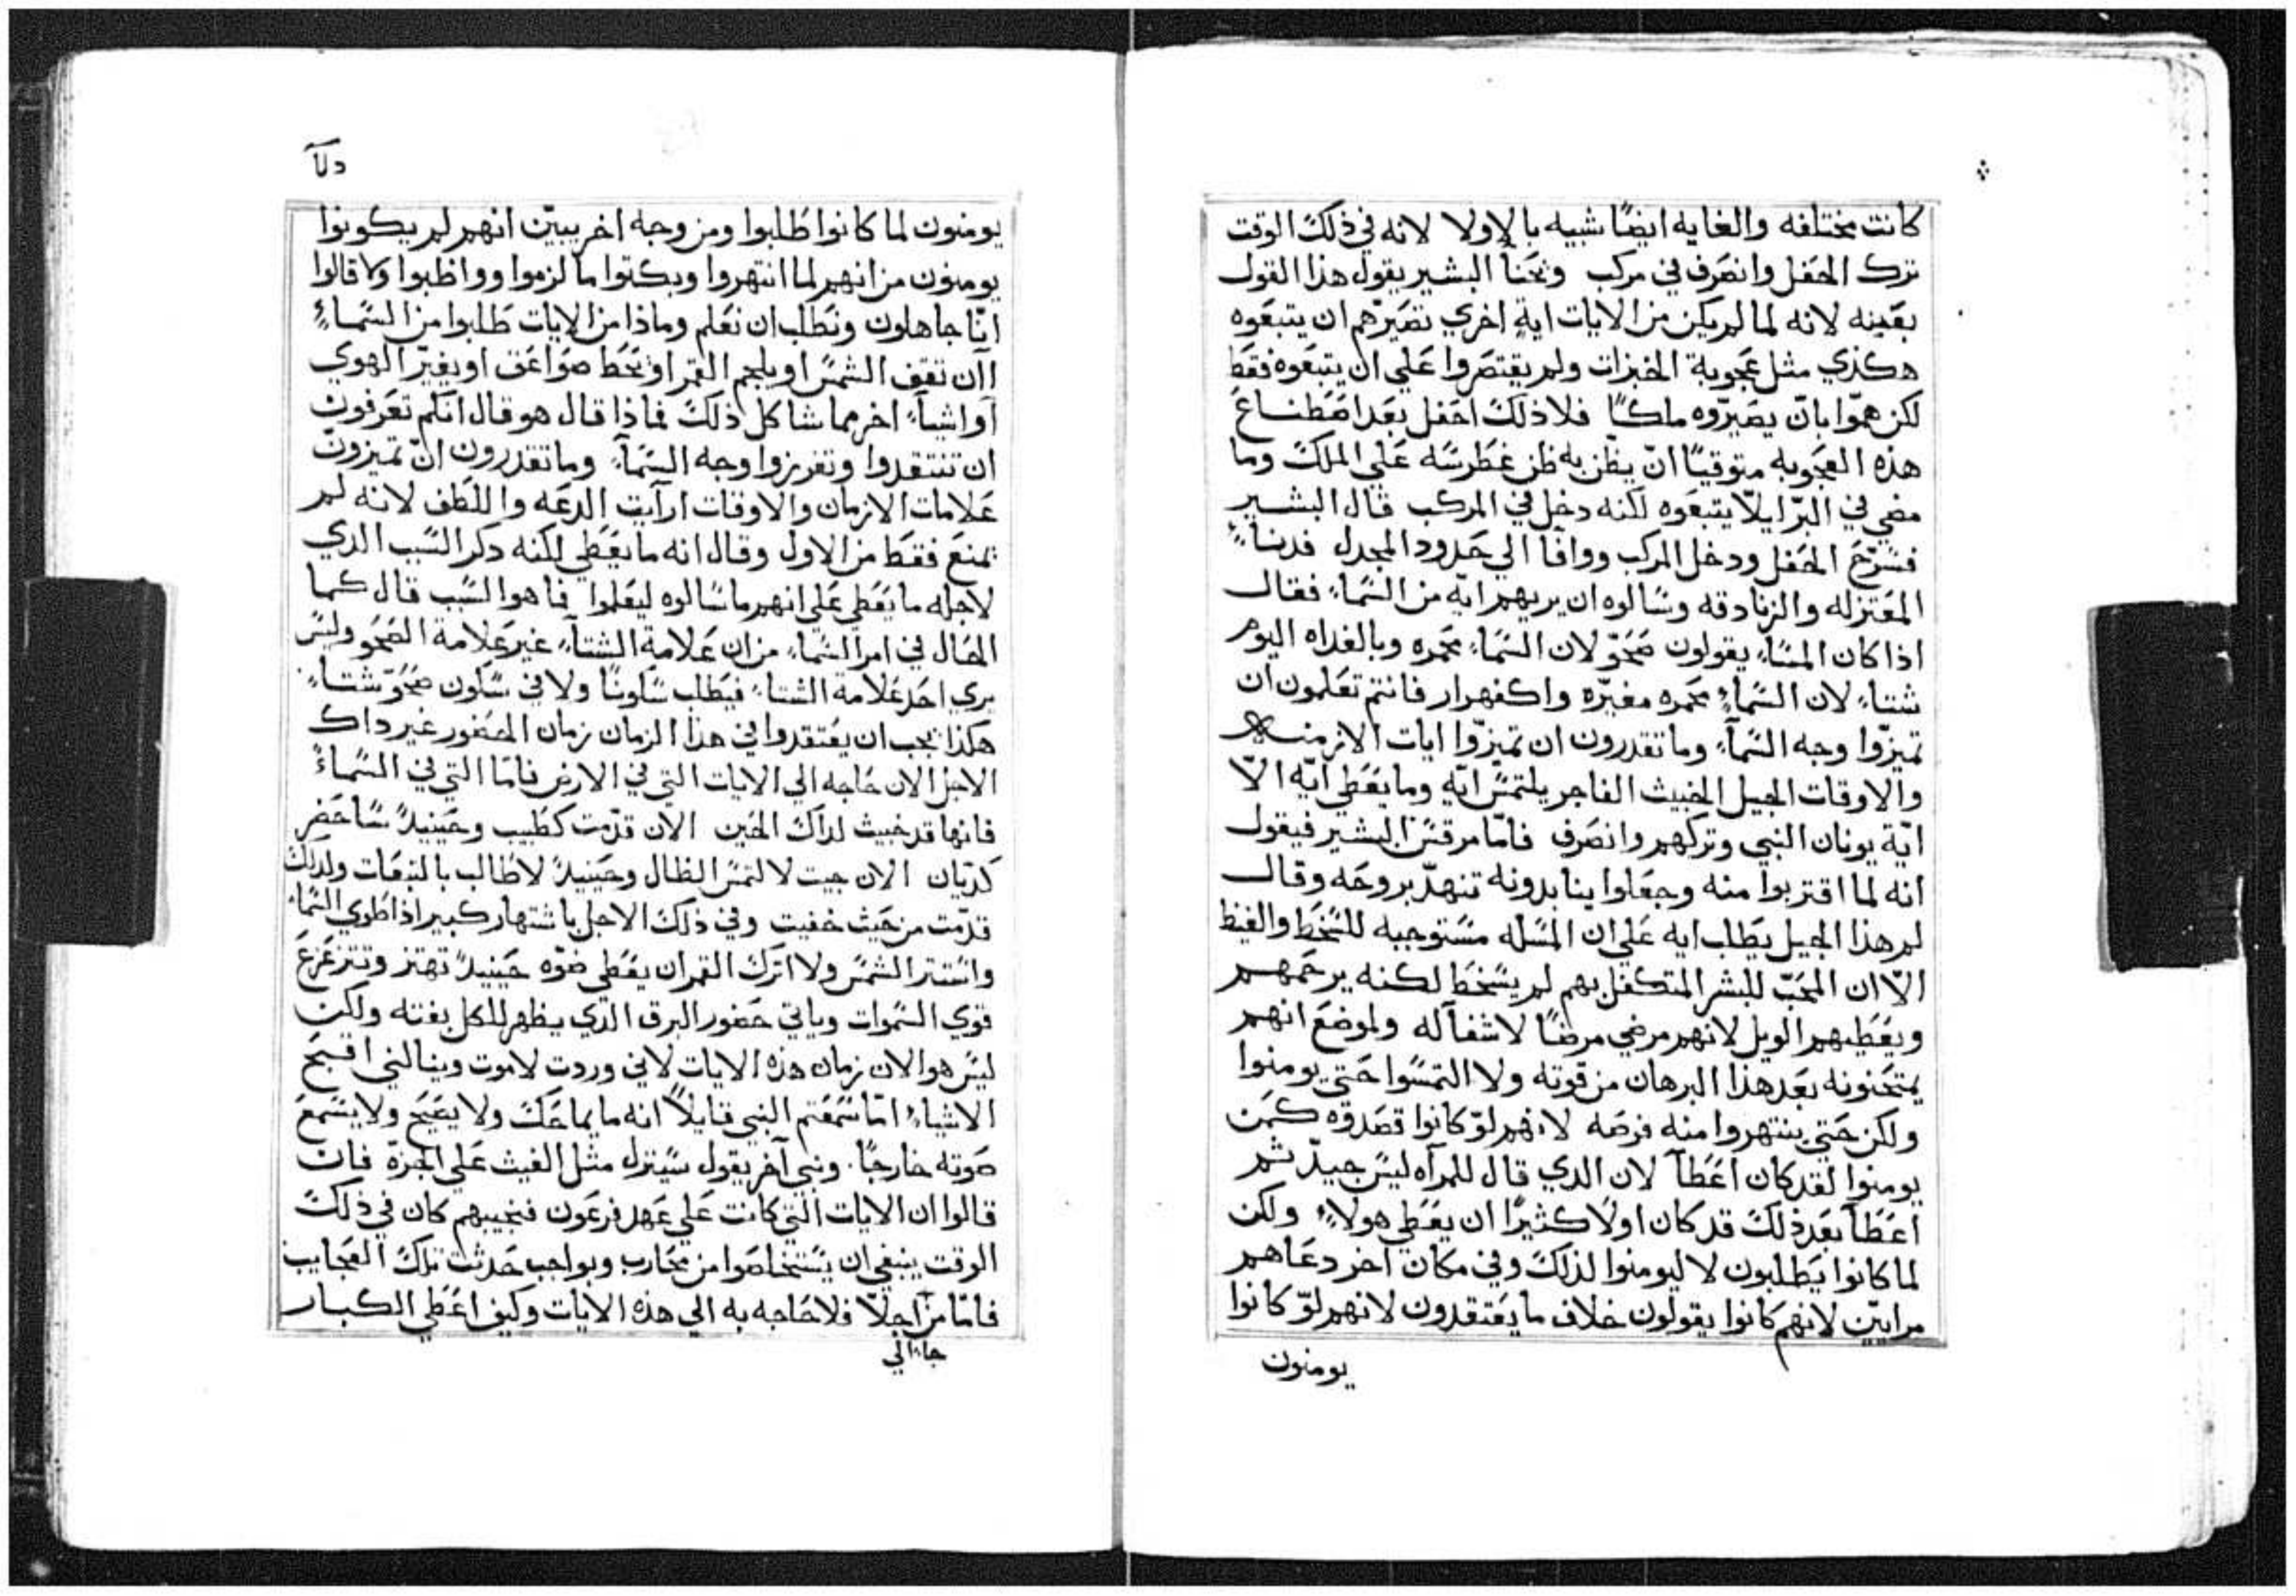 كانت مختلفه والغايه ايضًا شبيه بالاولا لانه في ذلك الوقت
ترك الحفل وانصرف في مركب وتحنا البشير يقول هذا القول
بعينه لانه لما لم يكن من الايات اية اخري تصيرهم ان يتبعوه
هكذي مثل عجوبة الخبزات ولم يقتصروا علي ان يتبعوه فقط
لكن همّوا بان يصيرّوه ملكًا فلاذلك احفل بعد اصطناع
هذه العجوبه متوقيًا ان يظن به ظن غطرسه علي الملك وما
مضي في البرّ ايلا يتبعوه لكنه دخل في المركب قال البشير
فسرّح الحفل ودخل المركب ووافا الي حدود المجدل فدنا
المعتزله والزنادقه وسالوه ان يريهم ايّه من السماء فقال
اذا كان المساء يقولون صحوّ لان السماء محمره وبالغداه اليوم
شتاء لان السماء محمره مغبرّه واكفهرار فانتم تعلمون ان
تميزّوا وجه السماء وما تقدرون ان تميزّوا ايات الازمنه
والاوقات الجيل الخبيث الفاجر يلتمس ايّه وما يعطي ايّه الاّ
ايّة يونان النبي وتركهم وانصرف فامّا مرقس البشير فيقول
انه لما اقتربوا منه وجعلوا يناىدونه تنهدّ بروحه وقال
لم هذا الجيل يطلب ايه علي ان المسله مستوجبه للسخط والغيظ
الاّ ان المحبّ للبشر المتكفل بهم لم يسخط لكنه يرحمهم
ويعطيهم الويل لانهم مرضي مرضًا لا شفآ له ولموضع انهم
يمتحنونه بعد هذا البرهان من قوته ولا التمسوا حتي يومنوا
ولكن حتي ينتهروا منه فرصه لانهم لوّ كانوا قصدوه كمن
يومنوا لقد كان اعطآ لان الدي قال للمرآه ليس جيدّ ثم
اعطآ بعد ذلك قد كان اولا كثيرًا ان يعطي هولاء ولكن
لما كانوا يطلبون لا ليومنوا لذلك وفي مكان اخر دعاهم
مرايين لانهم كانوا يقولون خلاف ما يعتقدون لانهم لوّ كانوا
يومنون
دلآ
يومنون لما كانوا طلبوا ومن وجه اخر يبيّن انهم لم يكونوا
يومنون من انهم لما انتهروا وبكتوا ما لزموا وواظبوا ولا قالوا
انّا جاهلون ونطلب ان نعلم وماذا من الايات طلبوا من السماء
اان تقف الشمس او يلجم القمر او تحط صواعق او يغيّر الهوي
او اشياء اخر مما شاكل ذلك فماذا قال هو قال انكم تعرفون
ان تنتقدوا وتفرزوا وجه السمآء وما تقدرون ان تميزون
علامات الازمان والاوقات ارآيت الدعه واللطف لانه لم
يمنع فقط من الاول وقال انه ما يعطي لكنه دكر السبب الدي
لاجله ما يعطي علي انهم ما سالوه ليعلموا فما هو السبب قال كما
الحال في امر السماء من ان علامة الشتآء غير علامة الصحو وليس
يري احد علامة الشتاء فيطلب سكونًا ولا في سكون صحوّ شتاء
هكذا يجب ان يعتقدوا في هذا الزمان زمان الحضور غير داك
الاجل الان حاجه الي الايات التي في الارض فامّا التي في السماء
فانها قد خبيت لداك الحين الان قدّمت كطبيب وحينيدً ساحضر
كديّان الان جيت لالتمس الظال وحينيدً لاطالب بالتبعات ولدلك
قدّمت من حيث خفيت وفي ذلك الاجل باشتهار كبير اذا طوي السماء
واستتر الشمس ولا اترك القمر ان يعطي ضوّه حينيدً تهتز وتتزعزع
قوي السموات وياتي حضور البرق الدي يظهر للكل بغته ولكن
ليس هو الان زمان هذه الايات لاني وردت لاموت وينالني اقبح
الاشياء امّا سمعتم النبي قايلاً انه ما يماحك ولا يصيح ولا يسمع
صوته خارجًا. ونبي آخر يقول سينزل مثل الغيث علي الجزّه فان
قالوا ان الايات التي كانت علي عهد فرعون فنجيبهم كان في ذلك
الوقت ينبغي ان يستخلصوا من محارب وبواجب حدثت تلك العجايب
فامّا من اجلاّ فلا حاجه به الي هذه الايات وكيف اعطي الكبار
جا الي